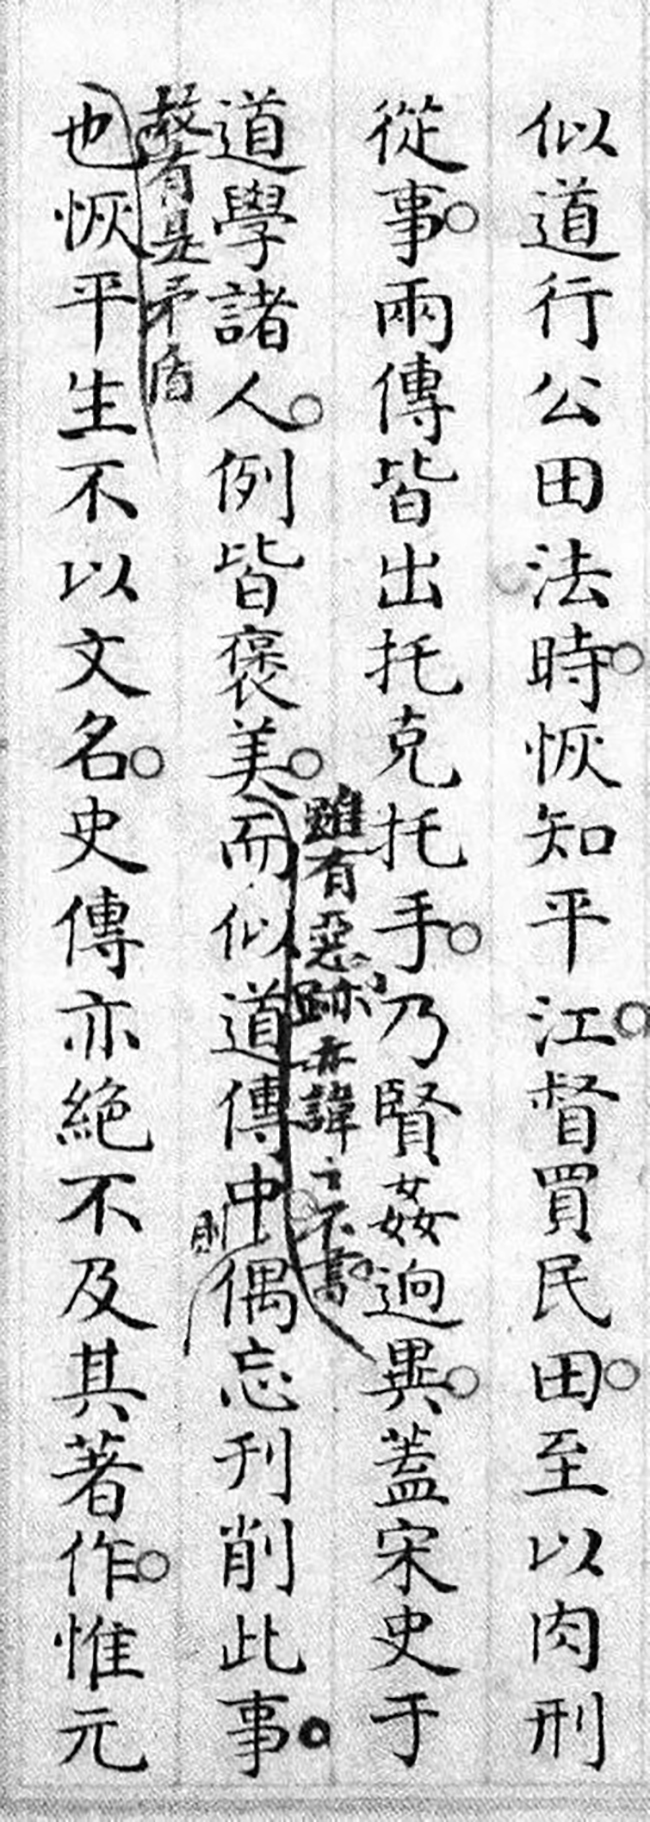 似道行公田法時恢知平江督買民田至以肉刑
從事兩傳皆出托克托手乃賢姦迥異蓋宋史于
雖有惡跡亦諱之不書
道學諸人例皆褒美而似道傳中偶忘刋削此事
則
故有是矛盾
也恢平生不以文名史傳亦絶不及其著作惟元